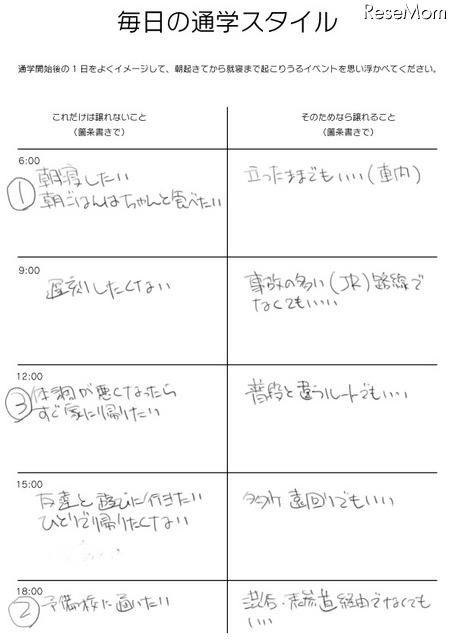 ReseMom
毎日の通学スタイル
通学開始後の1日をよくイメージして、朝起きてから就寝まで起こりうるイベントを思い浮かべてください。
これだけは譲れないこと
（箇条書きで）
そのためなら譲れること
（箇条書きで）
6:00
① 朝寝したい
朝ごはんはちゃんと食べたい
立ったままでもいい(車内)
9:00
遅刻したくない
事故の多い(JR)路線で
なくてもいい
12:00
③ 体調が悪くなったら
すぐ家に帰りたい
普段と違うルートでもいい
15:00
友達と遊びに行きたい
ひとりで帰りたくない
遠回りでもいい
18:00
② 予備校に通いたい
渋谷・表参道経由でなくても
いい